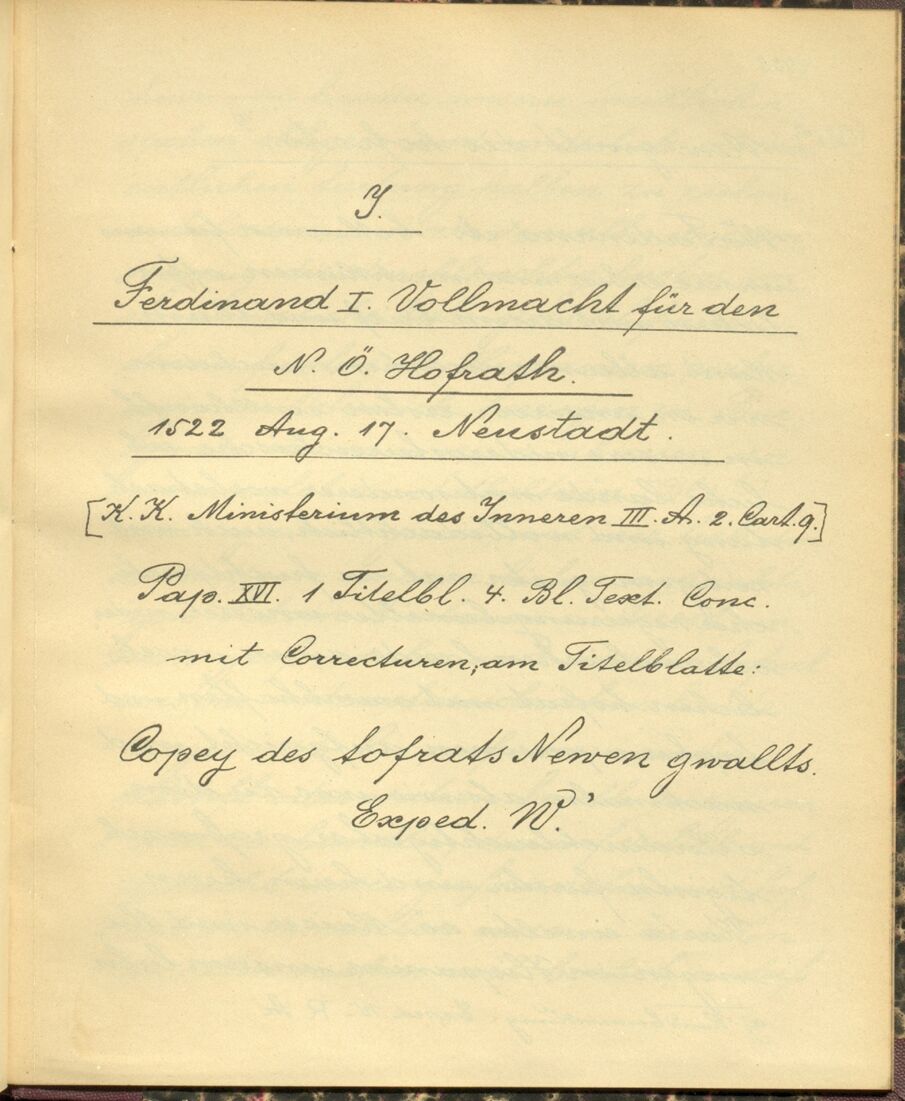 I.
Ferdinand I. Vollmacht für den
N. Ö. Hofrath.
1522 Aug. 17. Neustadt.
[K. K. Ministerium des Inneren III. A. 2. Cart. 9.]
Pap. XVI. 1 Titelbl. 4. Bl. Text. Conc.
mit Correcturen, am Titelblatte:
Copey des hofrats Newen gwallts.
Exped. W.